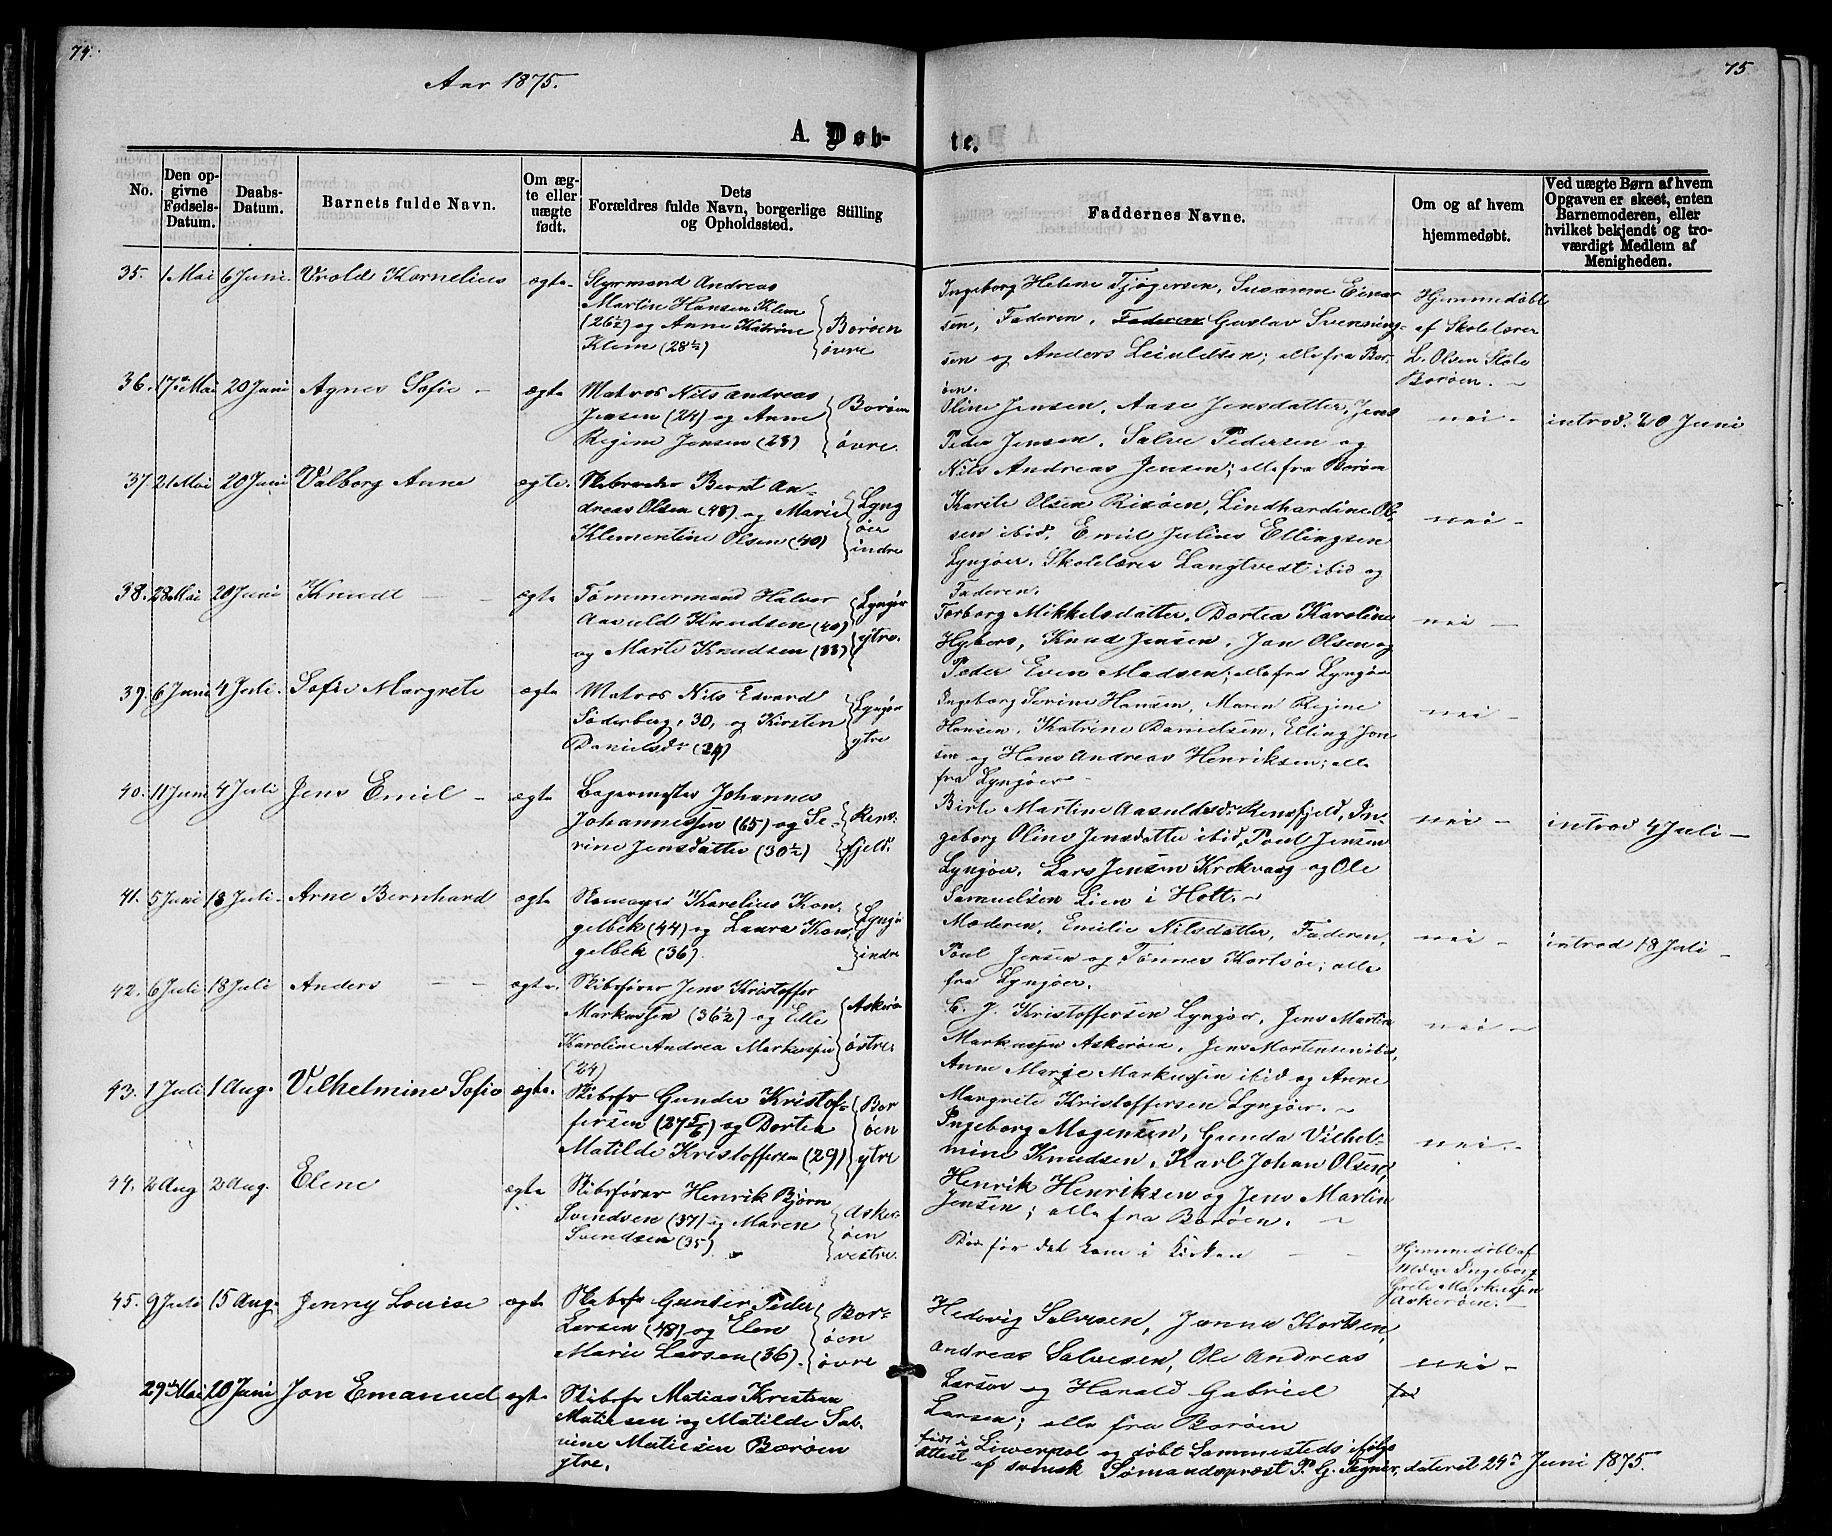 74.
75
Aar 1875.
A. Døb-
te.
No.
Den op-
givne
Fødsels-
Datum.
Daabs-
Datum.
Barnets fulde Navn.
Om æg-
te eller
uægte
født.
Dets
Forældres fulde Navn, borgerlige Stilling
og Opholdssted.
Faddernes Navne.
Om og af hvem
hjemmedøbt.
Ved uægte Børn af hvem
Opgaven er skeet, enten
Barnemoderen, eller
hvilket bekjendt og tro-
værdigt Medlem af
Menigheden.
35. 1 Mai 6 Juni Vrold Kornelius ægte
Styrmand Andreas
Martin Hansen Klem
(26½) og Anne Katrine
Klem (28½)
Borøen
øvre
Ingeborg Helene Tjøgersen, Susanne Einar
sen, Faderen, Faderen Gustav Svenning-
sen og Anders Leiulfsen; alle fra Bor-
øen.
Hjemmedøbt
af Skolelærer
L. Olsen
Borøen.
36. 17de Mai 20 Juni Agnes Sofie - ægte
Matros Nils Andreas
Jensen (24) og Anne
Regine Jensen (23)
Borøen
øvre.
Oline Jensen, Aase Jensdatter, Jens
Peder Jensen, Salve Pedersen og
Nils Andreas Jensen; alle fra Borøen
nei -
introd. 20 Juni
37. 21 Mai 20 Juni Valborg Anne ægte.
Skibsreder Bernt An-
dreas Olsen (48) og Marie
Klementine Olsen (40)
Lyng
øer
indre
Karete Olsen Risøen, Lindhardine Ol-
sen ibid, Emil Julius Ellingsen
Lyngøer, Skolelærer Langtvedt ibid og
Faderen.
nei -
38. 28 Mai 20 Juni Knudt - - ægte
Tømmermand Halvor
Aasuld Knudsen (40)
og Marte Knudsen (33)
Lyngør
ytre.
Torborg Mikkelsdatter, Dortea Karoline
Hyberg, Knud Jensen, Jan Olsen og
Peder Even Madsen; alle fra Lyngøer
nei -
39. 6 Juni 4 Juli. Sofie Margrete ægte
Matros Nils Edvard
Søderberg, 30, og Kirsten
Danielsdr (24)
Lyngør
ytre
Ingeborg Serine Hansen, Maren Regine
Hansen, Katrine Danielsen, Elling Jon
sen og Hans Andreas Henriksen; alle
fra Lyngøer -
nei -
40. 11 Juni 4 Juli Jens Emil - ægte
Bagermester Johannes
Johannessen (65) og Se-
rine Jensdatter (30½)
Rens-
fjeld.
Birte Martine Aasuldsdr Rensfjeld, In-
geborg Oline Jensdatter ibid, Poul Jensen
Lyngøer, Lars Jensen Krokvaag og Ole
Samuelsen Lien i Holt. -
nei -
introd 4 Juli -
41. 5 Juni 18 Juli - Arne Bernhard ægte
Karelius Kon-
gelbek (44) og Laura Kon-
gelbek (36).
Lyngø
indre
Moderen, Emilie Nilsdatter, Faderen,
Poul Jensen og Tønnes Kortsøe; alle
fra Lyngøer.
nei -
introd 18 Juli -
42. 6 Juli 18 Juli Anders - - ægte.
Skibsfører Jens Kristoffer
Markussen (36½) og Elle
Karoline Andrea Markussen
(24)
Askerø
østre.
C. J. Kristoffersen Lyngøer, Jens Martin
Markussen Askerøen, Jens Mortensen ibid,
Anne Marie Markussen ibid og Anne
Margrete Kristoffersen Lyngøer. -
nei -
43. 1 Juli 1 Aug. Vilhelmine Sofie ægte.
Skibsfr Gunder Kristof-
fersen (27 5/6) og Dortea
Matilde Kristoffersen (29)
Bor
øen
ytre
Ingeborg Mogensen, Gunda Vilhel-
mine Knudsen, Karl Johan Olsen,
Henrik Henriksen og Jens Martin
Jensen; alle fra Borøen. -
nei. -
44. 2 Aug 2 Aug. Elene ægte
Skibsfører Henrik Bjørn
Svendsen (37) og Maren
Svendsen (35)
Asker-
øen
vestre.
Døde før det kom i Kirken - -
Hjemmedøbt af
Ingeborg
Grete Markussen
Askerøen. -
45. 9 Juli 15 Aug. Jenny Louise ægte
Skibsfr Gunder Peder
Larsen (48) og Elen
Marie Larsen (36).
Bor-
øen
øvre
Hedevig Salvesen, Janna Kortsen,
Andreas Salvesen, Ole Andreas
Larsen og Harald Gabriel
Larsen; alle fra Borøen
nei -
29de Mai 20 Juni Jon Emanuel ægte
Skibsfr Matias Kristian
Matiesen og Matilde Sab-
rine Matiesen Borøen
ytre.
født i Liverpol og døbt Sammesteds ifølge
Attest af svensk Sømandspræst P. G. Tegner, dateret 29de Juni 1875.